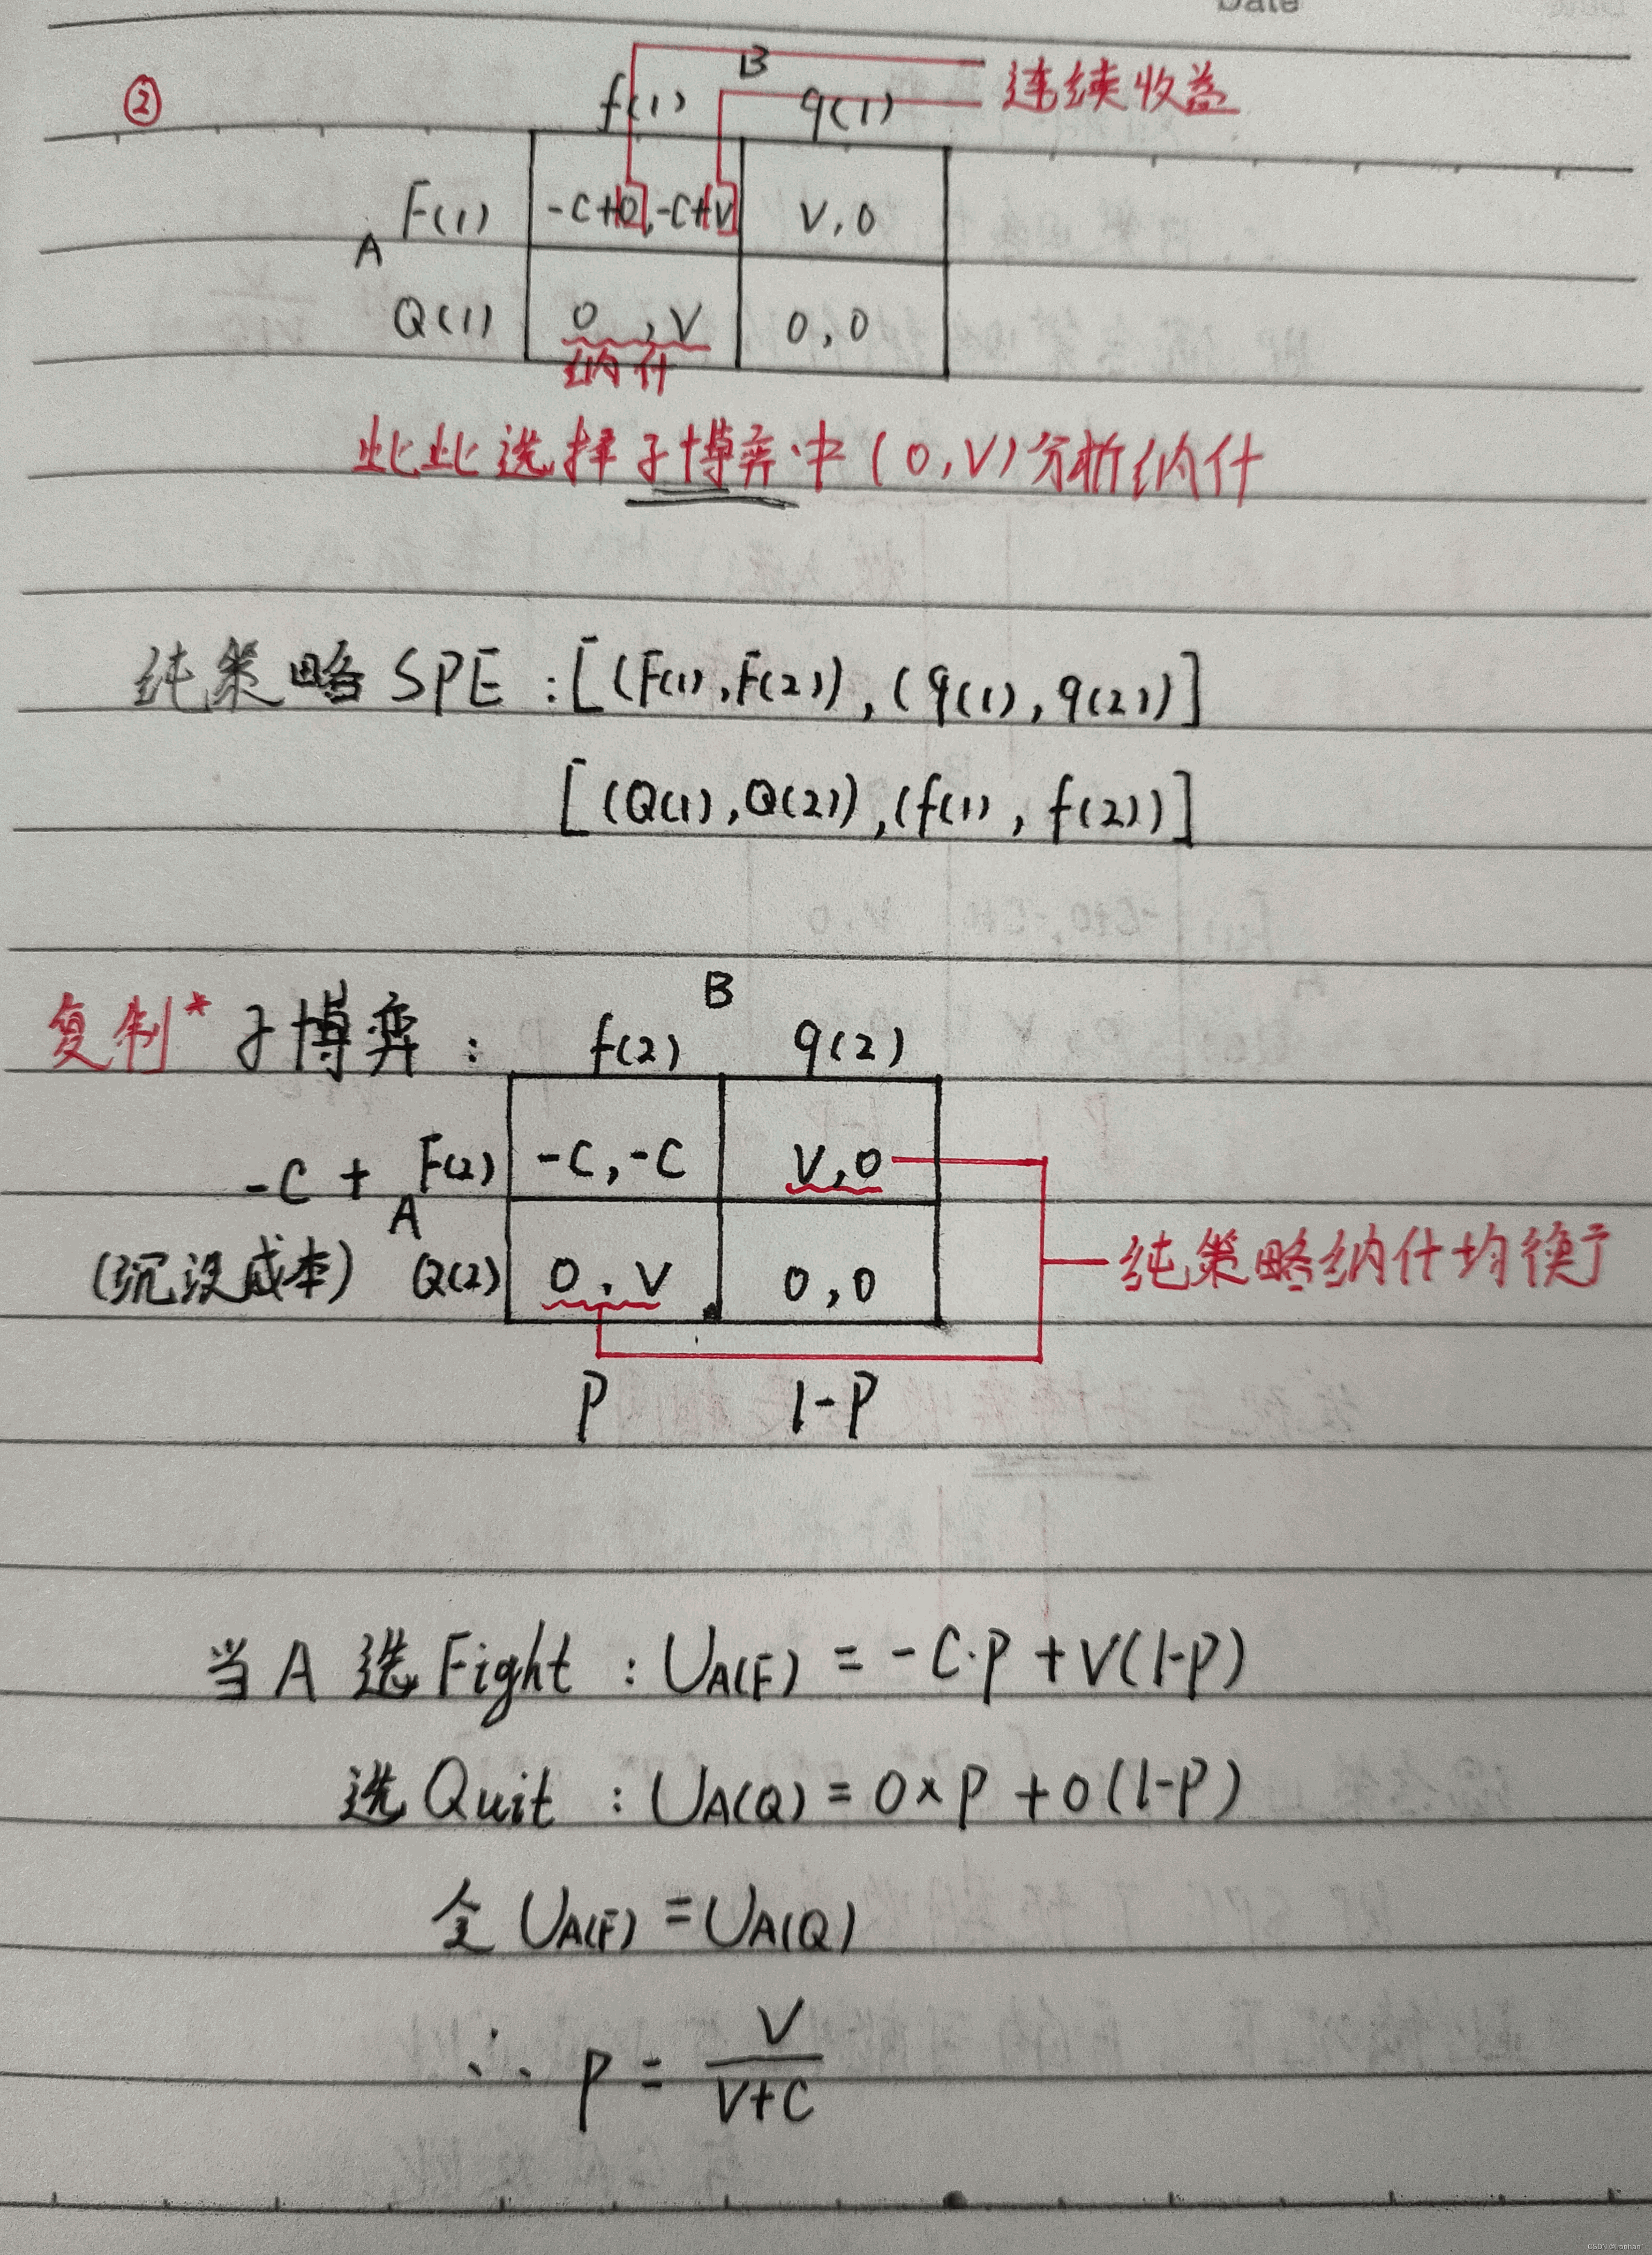 Date
② B 连续收益
f(1) q(1)
F(1) -C+0,-C+V V,0
A
Q(1) 0,V 0,0
纳什
此此选择子博弈中(0,V)分析纳什
纯策略SPE:[(F(1),F(2)),(q(1),q(2))]
[(Q(1),Q(2)),(f(1),f(2))]
B
复制*子博弈: f(2) q(2)
-C + F(2) -C,-C V,0
A
(沉没成本) Q(2) 0,V 0,0 纯策略纳什均衡
P 1-P
当A选Fight:UA(F)=-C·P+V(1-P)
选Quit:UA(Q)=0×P+0(1-P)
令UA(F)=UA(Q)
∴ P = V/(V+C)